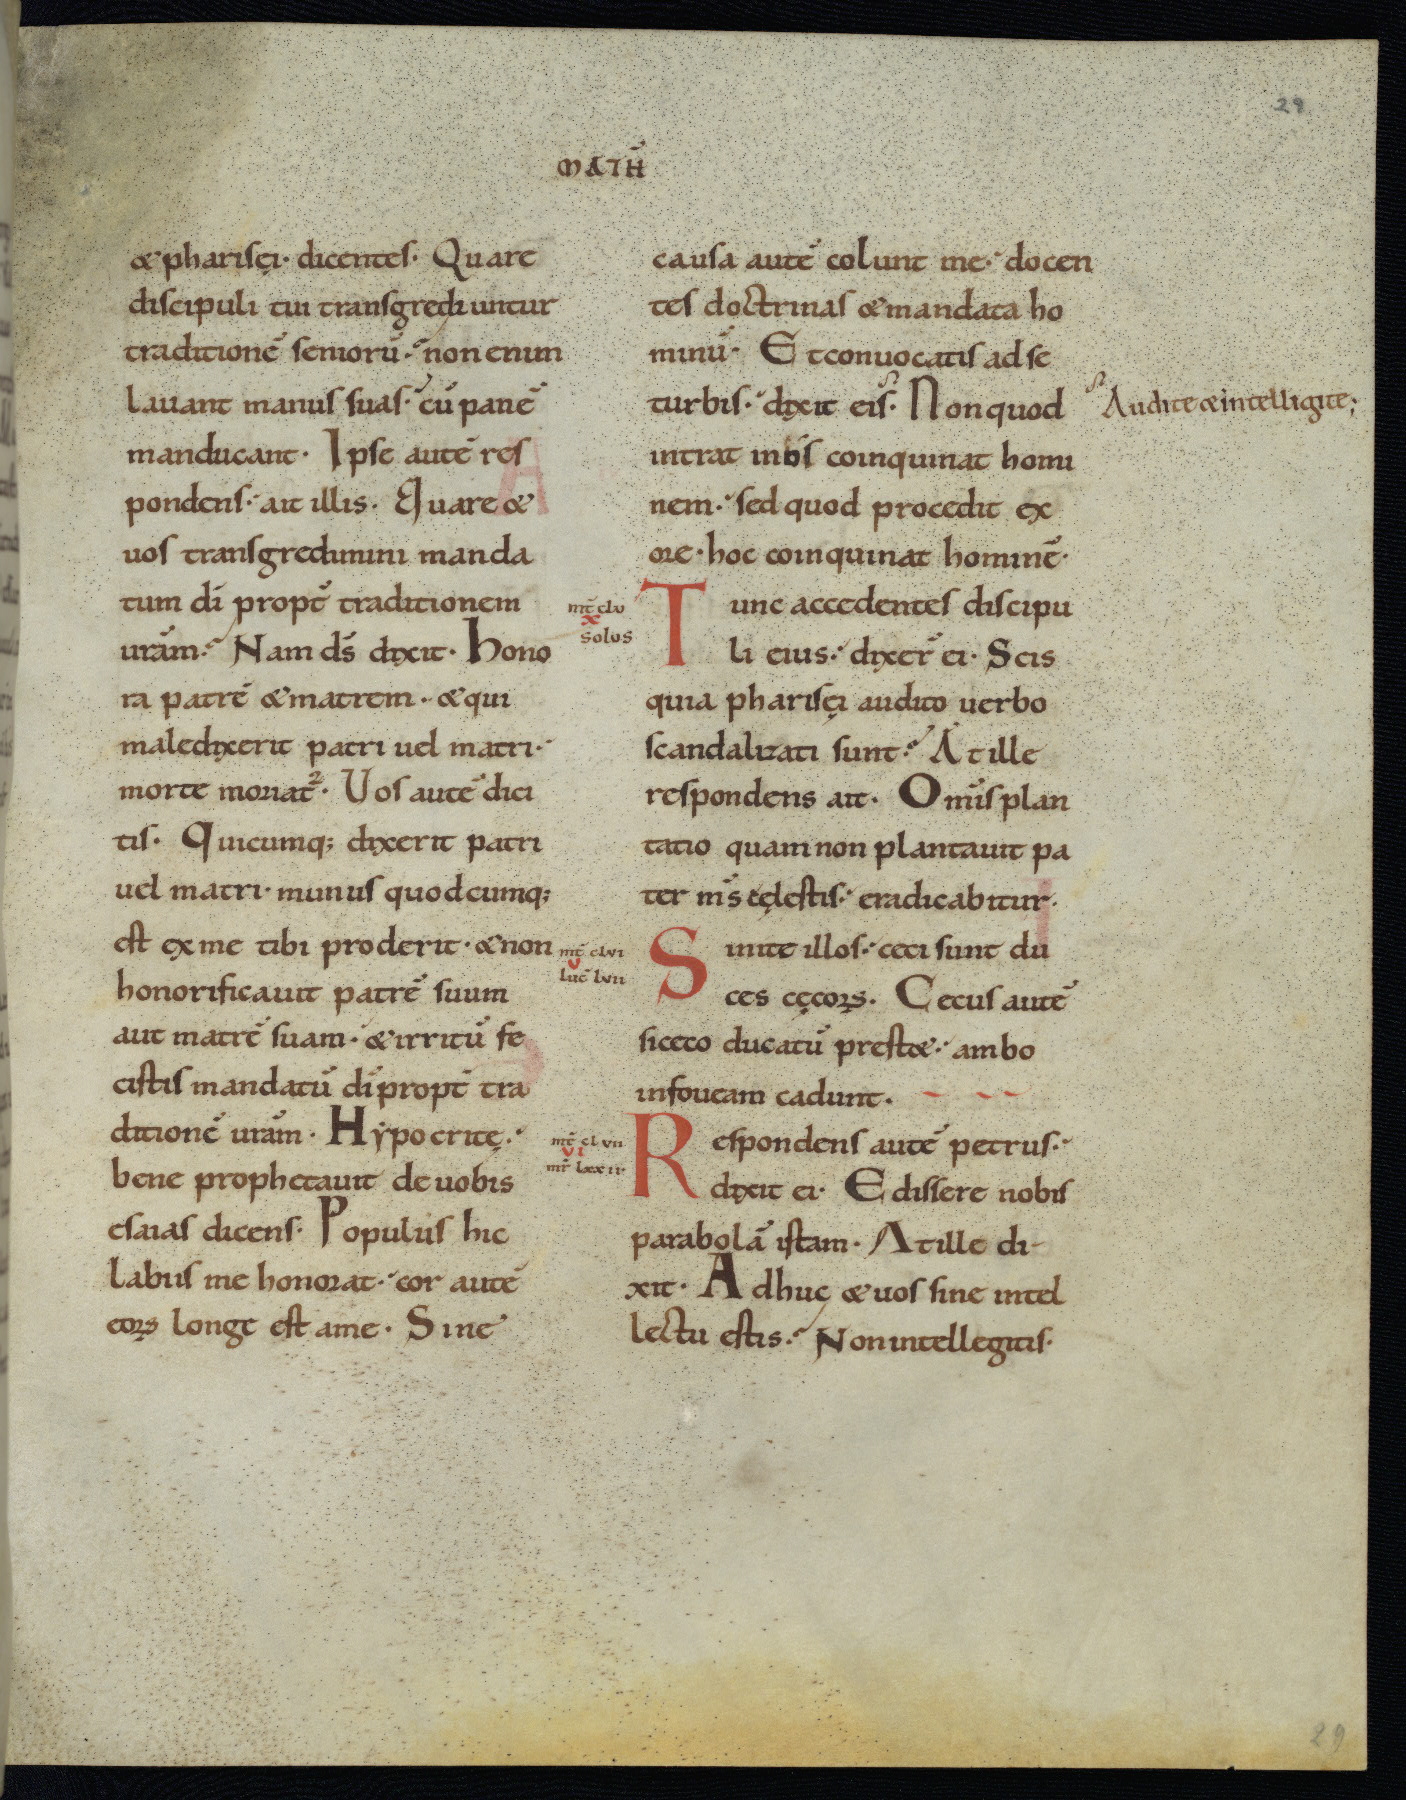 29
MATH̄
& pharisęi· dicentes· Quare
discipuli tui transgrediuntur
traditionē seniorū· non enim
lauant manus suas· cū panē
manducant· Ipse autē res
pondens· ait illis· Quare &
uos transgredimini manda
tum dī propt̄ traditionem
urām· Nam ds̄ dixit· Hono
ra patrē & matrem· & qui
maledixerit patri uel matri·
morte moriat²· Uos autē dici
tis· Quicumq; dixerit patri
uel matri· munus quodcumq;
est ex me tibi proderit· & non
honorificauit patrē suum
aut matrē suam· & irritū fe
cistis mandatū dī propt̄ tra
ditionē urām· Hypocritę·
bene prophetauit de uobis
esaias dicens· Populus hic
labiis me honorat· cor autē
eoꝝ longe est a me· Sine
causa autē colunt me· docen
tes doctrinas & mandata ho
minū· Et conuocatis ad se
turbis· dixit eis· Non quod
Audite & intelligite;
intrat in os coinquinat homi
nem· sed quod procedit ex
ore· hoc coinquinat hominē·
mt̄ clv
x
solus
Tunc accedentes discipu
li eius· dixer̄ ei· Scis
quia pharisęi audito uerbo
scandalizati sunt· At ille
respondens ait· Omīs plan
tatio quam non plantauit pa
ter ms̄ cęlestis· eradicabitur·
mt̄ clvi
v
luc̄ lvii
Sinite illos· ceci sunt du
ces cęcoꝝ· Cecus autē
si ceco ducatū prest&· ambo
in foueam cadunt·
mt̄ clvii
vi
mr̄ lxxii·
Respondens autē petrus·
dixit ei· Edissere nobis
parabolā istam· At ille di-
xit· Adhuc & uos sine intel
lectu estis· Non intellegitis·
29